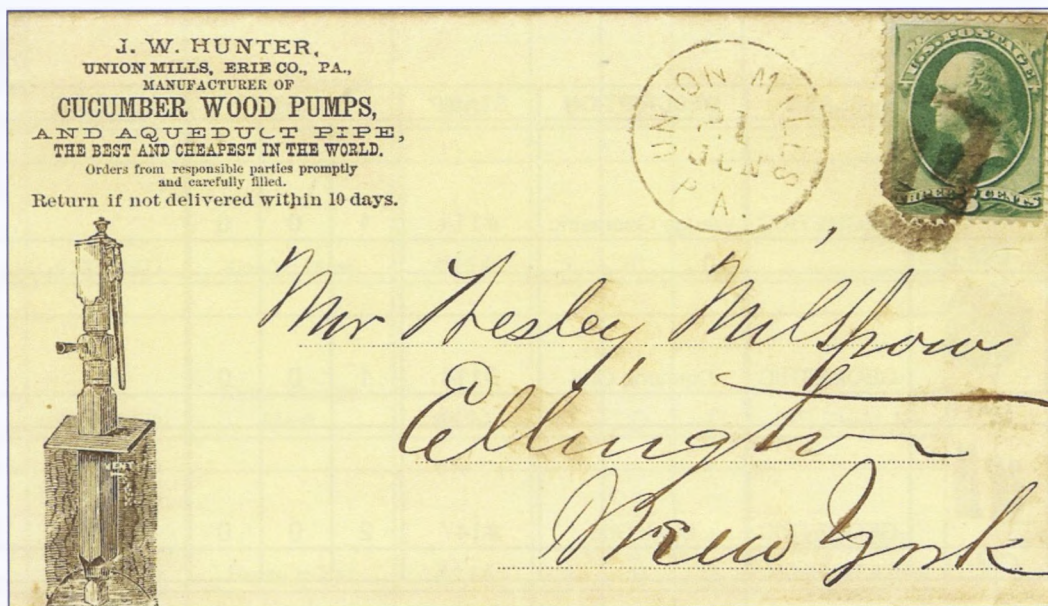 J. W. HUNTER,
UNION MILLS, ERIE CO., PA.,
MANUFACTURER OF
CUCUMBER WOOD PUMPS,
AND AQUEDUCT PIPE,
THE BEST AND CHEAPEST IN THE WORLD.
Orders from responsible parties promptly
and carefully filled.
Return if not delivered within 10 days.
VENT
UNION MILLS
JUN
PA.
U.S. POSTAGE
THREE CENTS
Mr Wesley
Ellington
New York